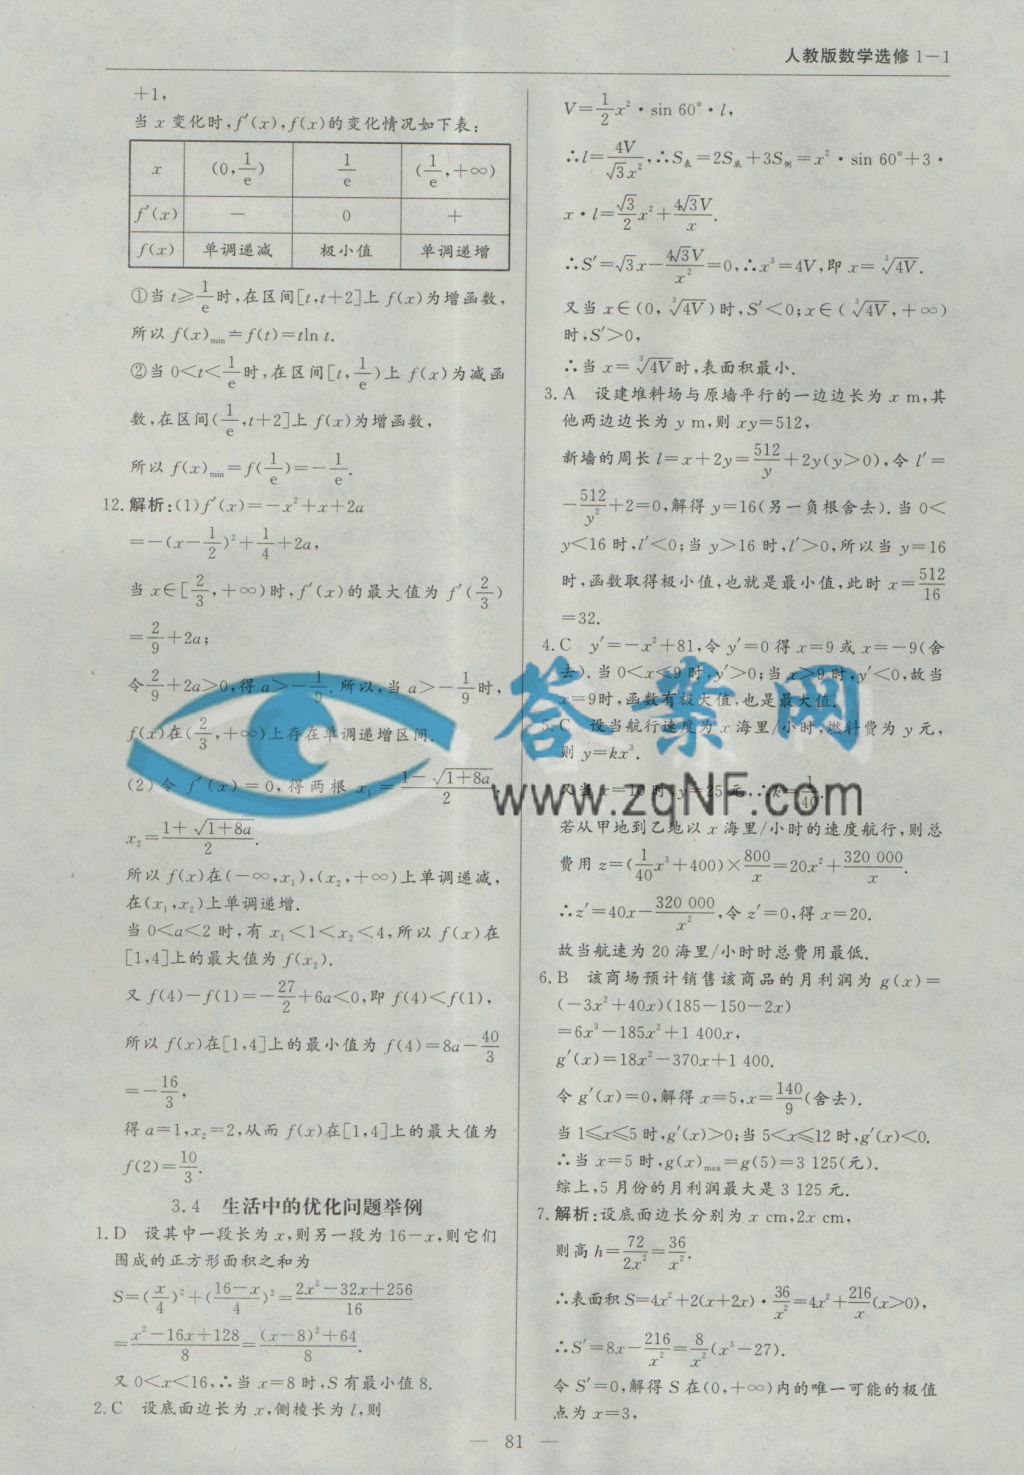 人教版数学选修 1－1
+1,
当 x 变化时,f′(x),f(x)的变化情况如下表:
x (0,1/e) 1/e (1/e,+∞)
f′(x) － 0 +
f(x) 单调递减 极小值 单调递增
①当 t≥1/e时,在区间[t,t+2]上 f(x)为增函数,
所以 f(x)min=f(t)=tln t.
②当 0<t<1/e时,在区间[t,1/e)上 f(x)为减函
数,在区间(1/e,t+2]上 f(x)为增函数,
所以 f(x)min=f(1/e)=-1/e.
12.解析:(1)f′(x)=-x²+x+2a
=-(x-1/2)²+1/4+2a,
当 x∈[2/3,+∞)时,f′(x)的最大值为 f′(2/3)
=2/9+2a;
令2/9+2a>0,得 a>-1/9.所以,当 a>-1/9时,
f(x)在(2/3,+∞)上存在单调递增区间.
(2)令 f′(x)=0,得两根 x₁=(1-√(1+8a))/2,
x₂=(1+√(1+8a))/2.
所以 f(x)在(-∞,x₁),(x₂,+∞)上单调递减,
在(x₁,x₂)上单调递增.
当 0<a<2 时,有 x₁<1<x₂<4,所以 f(x)在
[1,4]上的最大值为 f(x₂).
又 f(4)-f(1)=-27/2+6a<0,即 f(4)<f(1),
所以 f(x)在[1,4]上的最小值为 f(4)=8a-40/3
=-16/3,
得 a=1,x₂=2,从而 f(x)在[1,4]上的最大值为
f(2)=10/3.
3.4 生活中的优化问题举例
1.D 设其中一段长为 x,则另一段为 16-x,则它们
围成的正方形面积之和为
S=(x/4)²+((16-x)/4)²=(2x²-32x+256)/16
=(x²-16x+128)/8=((x-8)²+64)/8.
又 0<x<16,∴当 x=8 时,S 有最小值 8.
2.C 设底面边长为 x,侧棱长为 l,则
V=1/2x²·sin 60°·l,
∴l=4V/(√3x²),∴S表=2S底+3S侧=x²·sin 60°+3·
x·l=√3/2x²+4√3V/x.
∴S′=√3x-4√3V/x²=0,∴x³=4V,即 x=∛4V.
又当 x∈(0,∛4V)时,S′<0;x∈(∛4V,+∞)
时,S′>0,
∴当 x=∛4V时,表面积最小.
3.A 设建堆料场与原墙平行的一边边长为 x m,其
他两边边长为 y m,则 xy=512,
新墙的周长 l=x+2y=512/y+2y(y>0),令 l′=
-512/y²+2=0,解得 y=16(另一负根舍去).当 0<
y<16 时,l′<0;当 y>16 时,l′>0,所以当 y=16
时,函数取得极小值,也就是最小值,此时 x=512/16
=32.
4.C y′=-x²+81,令 y′=0 得 x=9 或 x=-9(舍
去).当 0<x≤9 时,y′>0;当 x>9时,y′<0,故当
x=9时,函数有极大值,也是最大值.
5.C 设当航行速度为 x 海里/小时,燃料费为 y 元,
则 y=kx³.
又当 x=10 时,y=25 元,∴k=1/40.
若从甲地到乙地以 x 海里/小时的速度航行,则总
费用 z=(1/40x³+400)×800/x=20x²+320 000/x.
∴z′=40x-320 000/x²,令 z′=0,得 x=20.
故当航速为 20 海里/小时时总费用最低.
6.B 该商场预计销售该商品的月利润为 g(x)=
(-3x²+40x)(185-150-2x)
=6x³-185x²+1 400x,
g′(x)=18x²-370x+1 400.
令 g′(x)=0,解得 x=5,x=140/9(舍去).
当 1≤x≤5 时,g′(x)>0;当 5<x≤12 时,g′(x)<0.
∴当 x=5 时,g(x)max=g(5)=3 125(元).
综上,5 月份的月利润最大是 3 125 元.
7.解析:设底面边长分别为 x cm,2x cm,
则高 h=72/2x²=36/x².
∴表面积 S=4x²+2(x+2x)·36/x²=4x²+216/x(x>0),
∴S′=8x-216/x²=8/x²(x³-27).
令 S′=0,解得 S 在(0,+∞)内的唯一可能的极值
点为 x=3,
答案网
www.zqNF.com
— 81 —